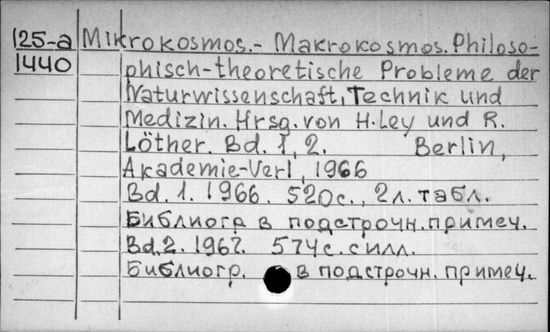 125-a Mikrokosmos.- Makrokosmos. Philoso-
1440 phisch-theoretische Probleme der
Naturwissenschaft, Technik und
Medizin. Hrsg. von H. Ley und R.
Löther. Bd. 1, 2. Berlin,
Akademie-Verl, 1966
Bd. 1. 1966. 520с., 2л. табл.
Библиогр в подстрочн. примеч.
Bd. 2. 1967. 574с. с илл.
Библиогр. в подстрочн. примеч.